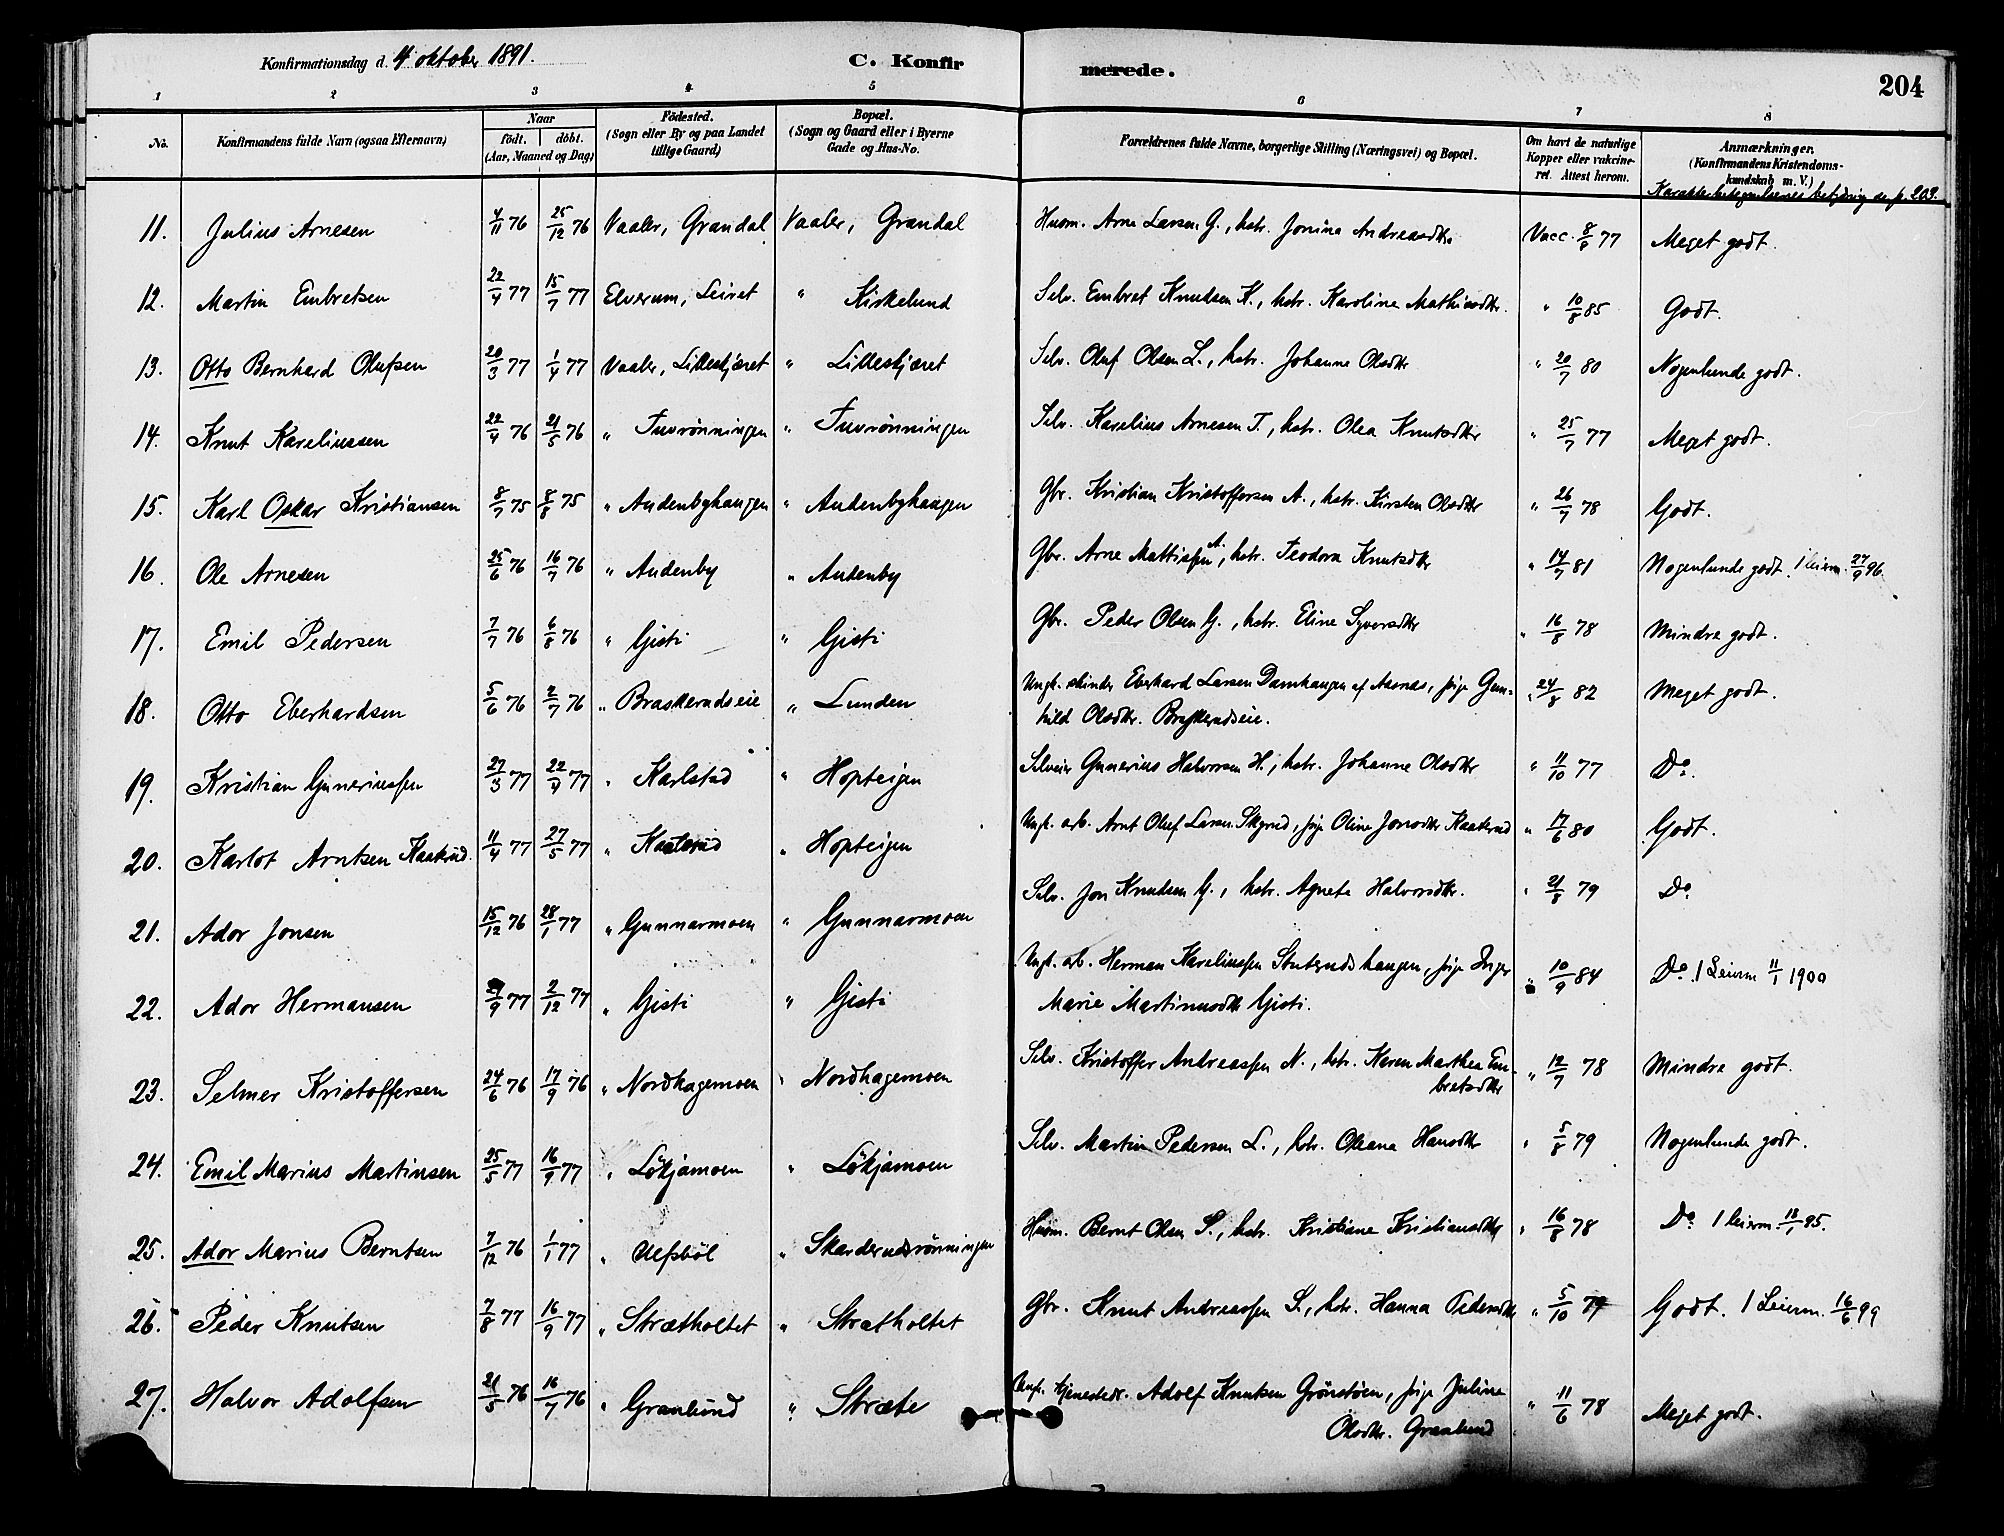 Konfirmationsdag d. 4 oktober 1891. C. Konfir merede. 204
1 2 3 4 5 6 7 8
No. Konfirmandens fulde Navn (ogsaa Efternavn) Naar født. døbt. (Aar, Maaned og Dag) Fødested. (Sogn eller By og paa Landet tillige Gaard) Bopæl. (Sogn og Gaard eller i Byerne Gade og Hus-No. Forældrenes fulde Navne, borgerlige Stilling (Næringsvei) og Bopæl. Om havt de naturlige Kopper eller vakcineret. Attest herom. Anmærkninger. (Konfirmandens Kristendomskundskab m. V.)
betydning se p. 203.
11. Julius Arnesen 4/11 76 25/12 76 Vaaler, Grandal Vaaler, Grandal Husm. Arne Larsen G., hstr. Jonina Andreasdtr Vacc. 8/8 77 Meget godt.
12. Martin Embretsen 22/4 77 15/7 77 Elverum, Leiret " Kirkelund Selv. Embret Knudsen K., hstr. Karoline Mathiasdtr. " 10/8 85 Godt.
13. Otto Bernhard Olufsen 20/3 77 1/4 77 Vaaler, Lilleskjæret " Lilleskjæret Selv. Oluf Olsen L., hstr. Johanne Olsdtr " 20/7 80 Nogenlunde godt.
14. Knut Kareliussen 22/4 76 21/5 76 " Tuvrønningen " Tuvrønningen Selv. Karelius Arnesen T., hstr. Olea Knutsdtr " 25/7 77 Meget godt.
15. Karl Oskar Kristiansen 8/7 75 8/8 75 " Audenbyhaugen " Audenbyhaugen Gbr. Kristian Kristoffersen A., hstr. Kirsten Olsdtr " 26/7 78 Godt.
16. Ole Arnesen 25/6 76 16/7 76 " Audenby " Audenby Gbr. Arne Mattissen A., hstr. Teodora Knutsdtr " 14/7 81 Nogenlunde godt. 1 leierm. 27/9 96.
17. Emil Pedersen 7/7 76 6/8 76 " Gjsti " Gjsti Gbr. Peder Olsen G., hstr. Eline Syversdtr " 16/8 78 Mindre godt.
18. Otto Eberhardsen 5/6 76 2/7 76 " Braskerudseie " Lunden Ungk. Eberhard Larsen Damhaugen af Aasnes, pige Gunhild Olsdtr. Braskerudseie. " 24/8 82 Meget godt.
19. Kristian Gunerinssen 27/3 77 22/4 77 " Karlstad " Hopteigen Selveier Gunerius Halvorsen H., hstr. Johanne Olsdtr " 11/10 77 Do.
20. Karlot Arntsen Kaaterud. 11/4 77 27/5 77 " Kaaterud " Hopteigen Ungk. arb. Arnt Oluf Larsen Skyrud, pige Oline Jonsdtr Kaaterud " 17/6 80 Godt.
21. Ador Jonsen 15/12 76 28/1 77 " Gunnarmoen " Gunnarmoen Selv. Jon Knudsen G., hstr. Agnete Halvorsdtr. " 21/8 79 Do
22. Ador Hermansen 29/9 77 2/12 77 " Gjsti " Gjsti Ungk. arb. Herman Kareliussen Stuterudshaugen, pige Inger Marie Martinusdtr Gjsti. " 10/9 84 Do. 1 Leierm 11/1 1900
23. Selmer Kristoffersen 24/6 76 17/9 76 " Nordhagemoen " Nordhagemoen Selv. Kristoffer Andreassen N., hstr. Karen Marthea Embretsdtr " 12/7 78 Mindre godt.
24. Emil Marius Martinsen 25/5 77 16/9 77 " Løkjamoen " Løkjamoen Selv. Martin Pedersen L., hstr. Oleana Hansdtr " 5/8 79 Nogenlunde godt.
25. Ador Marius Berntsen 7/12 76 1/1 77 " Ulfsbøl " Skarderudsrønningen Husm. Bernt Olsen S., hstr. Kristiane Kristiansdtr " 16/8 78 Do 1 leierm. 13/1 95.
26. Peder Knutsen 7/8 77 16/9 77 " Strætholtet " Strætholtet Gbr. Knut Andreassen S., hstr. Hanna Pedersdtr " 5/10 79 Godt. 1 Leierm. 16/6 99
27. Halvor Adolfsen 21/5 76 16/7 76 " Granlund " Stræte Ungk. tjenestedr. Adolf Knutsen Grønstøen, pige Juline Olsdtr. Granlund " 11/6 78 Meget godt.